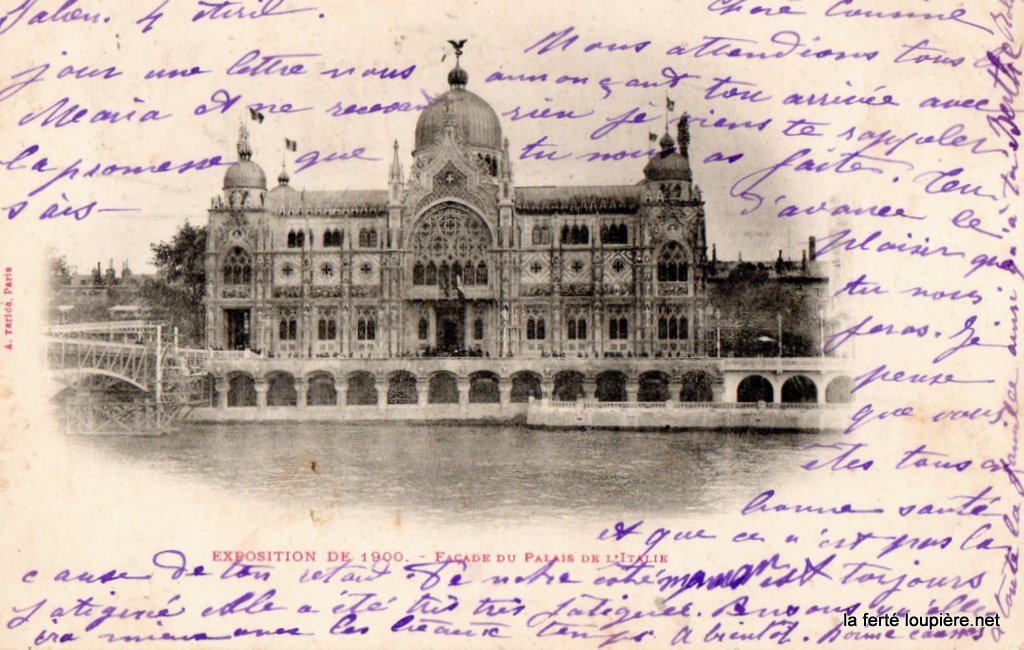 Salon. 4 Avril.
Chère Cousine
Nous attendions tous les
jour une lettre nous annonçant ton arrivée avec
Maria et ne recevant rien je viens te rappeler
la promesse que tu nous as faite. T'en
s'ais
d'avance le
plaisir que
tu nous
feras. J'y
pense
que vous
êtes tous en
bonne santé
et que ce n'est pas la
cause de ton retard. De notre côté maman est toujours
fatiguée elle a été très très fatiguée. Pensons qu'elle
ira mieux avec les beaux temps. A bientôt. bonne caresses
à toute la famille ainsi qu'à toi Berthe
A. Taride, Paris
EXPOSITION DE 1900. - FAÇADE DU PALAIS DE L'ITALIE
la ferté loupière.net